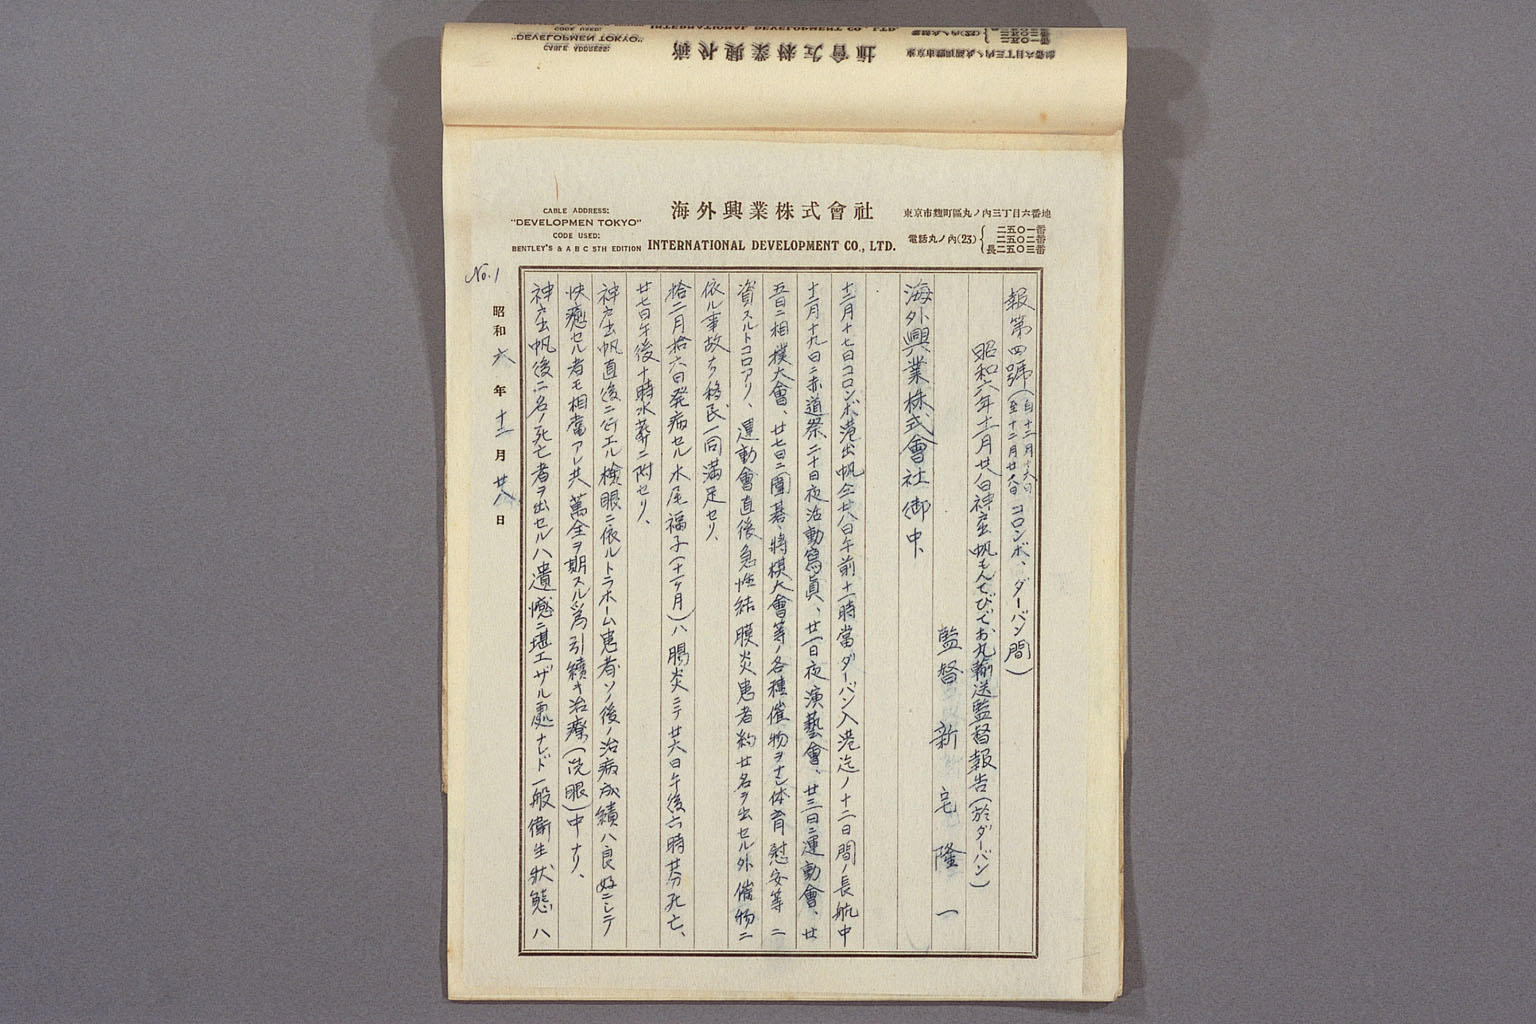 海外興業株式會社
INTERNATIONAL DEVELOPMENT CO., LTD.
CABLE ADDRESS:
"DEVELOPMEN TOKYO"
CODE USED:
BENTLEY'S & A B C 5TH EDITION
東京市麴町區丸ノ內三丁目六番地
電話丸ノ內(23)
二五〇一番
二五〇二番
長二五〇三番
No.1
報第四號(自十二月十六日至十二月廿八日コロンボ、ダーバン間)
昭和六年十一月廿八日神戸出帆もんてびでお丸輸送監督報告(於ダーバン)
監督 新宅隆一
海外興業株式會社御中、
十二月十七日コロンボ港出帆仝廿八日午前十一時當ダーバン入港迄ノ十二日間ノ長航中
十二月十九日ニ赤道祭二十日夜活動寫眞、廿一日夜演藝會、廿三日ニ運動會、廿
五日ニ相撲大會、廿七日ニ圍碁、將棋大會等ノ各種催物ヲナシ体育慰安等ニ
資スルトコロアリ、運動會直後急性結膜炎患者約廿名ヲ出セル外催物ニ
依ル事故ナク移民一同滿足セリ、
拾二月拾六日発病セル水尾福子(十一ヶ月)ハ腸炎ニテ廿六日午後六時廿分死亡、
廿七日午後十時水葬ニ附セリ、
神戸出帆直後ニ行エル檢眼ニ依ルトラホーム患者ソノ後ノ治病成績ハ良好ニシテ
快癒セル者モ相當アレ共萬全ヲ期スル爲引續キ治療(洗眼)中ナリ、
神戸出帆後二名ノ死亡者ヲ出セルハ遺憾ニ堪エザル處ナレド一般衛生狀態ハ
昭和六年十二月廿八日